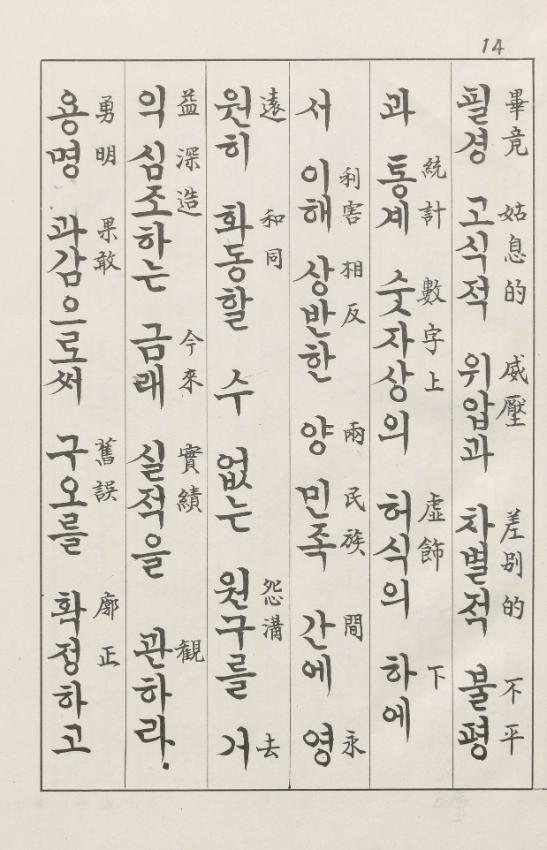 14
필경 고식적 위압과 차별적 불평
畢竟 姑息的 威壓 差別的 不平
과 통계 숫자상의 허식의 하에
統計 數字上 虛飾 下
서 이해 상반한 양 민족 간에 영
利害 相反 兩 民族 間 永
원히 화동할 수 없는 원구를 거
遠 和同 怨溝 去
익 심조하는 금래 실적을 관하라.
益 深造 今來 實績 観
용명 과감으로써 구오를 확정하고
勇明 果敢 舊誤 廓正